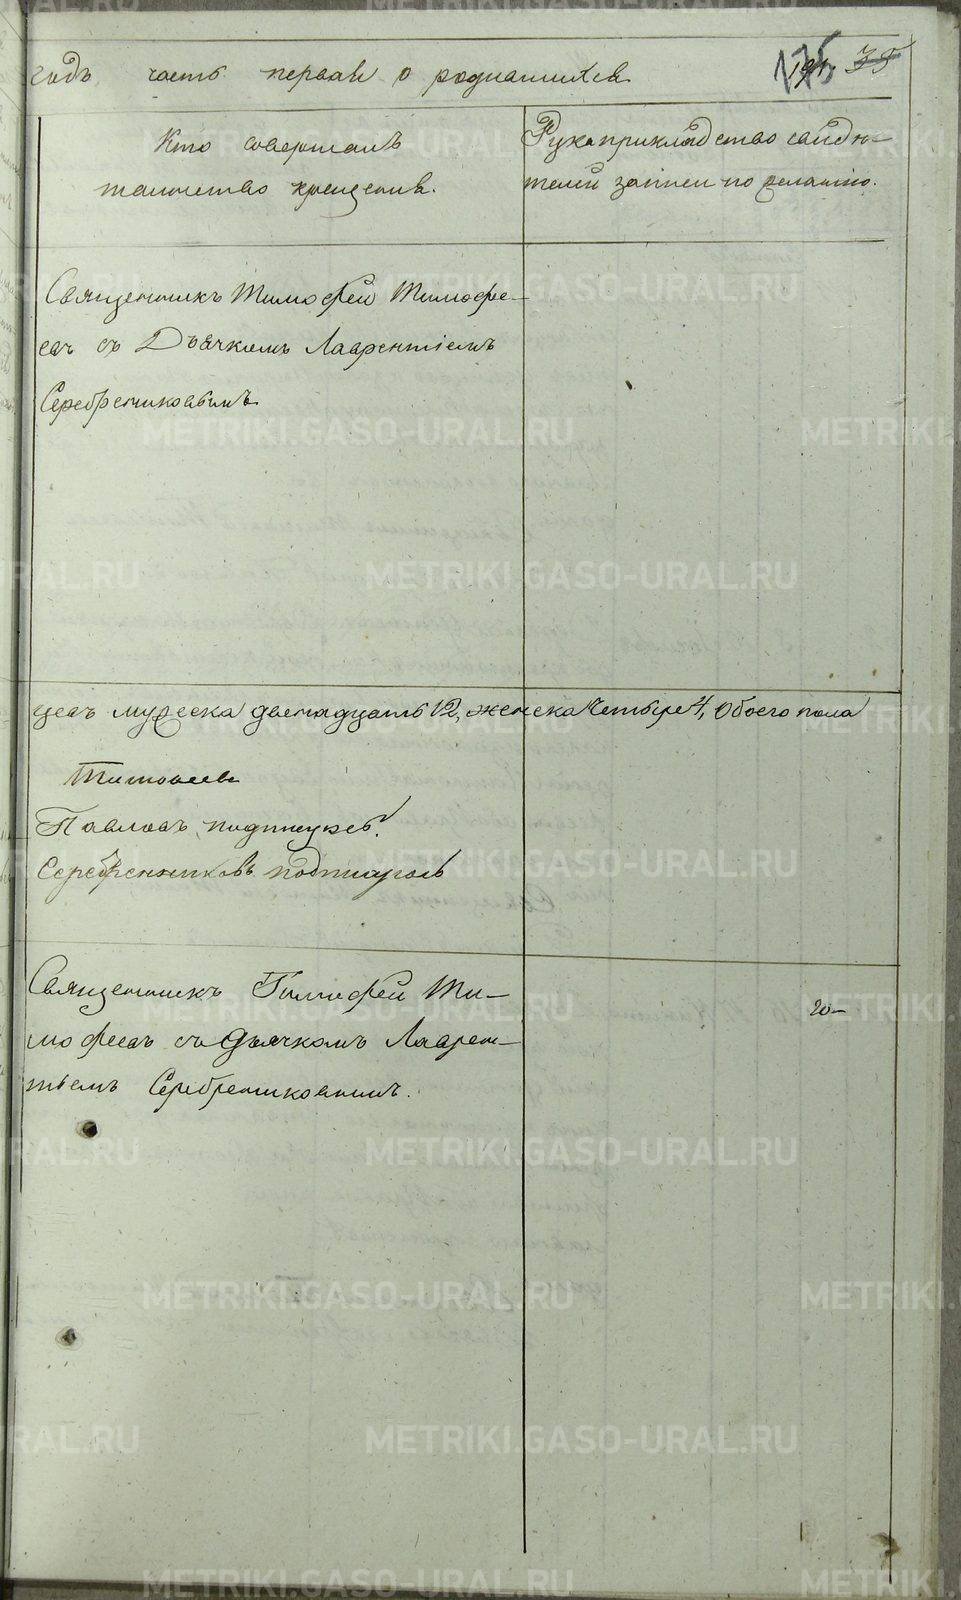 годъ часть первая о родившихся 175 35
Кто совершалъ
таинство крещенія.
Рукоприкладство свидѣ-
телей записи по желанію.
Священникъ Тимофей Тимофе-
евъ съ Дьячкомъ Лаврентіемъ
Серебрениковымъ
цевъ мужеска двенадцать 12, женска четыре 4, Обоего пола
Тимофеевъ
Павловъ
Серебренниковъ
Священникъ Тимофей Ти-
мофеевъ съ дьячкомъ Лаврен-
тьемъ Серебрениковымъ.
METRIKI.GASO-URAL.RU